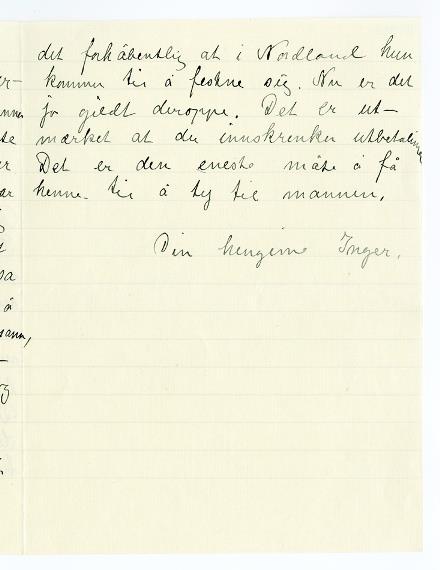 det forhåbentlig at i Nordland hun
kommer til å festne sig. Nu er det
jo gildt deroppe. Det er ut-
mærket at du innskrenker utbetalingen
Det er den eneste måte å få
henne til å ty til mannen.
Din hengivne Inger.